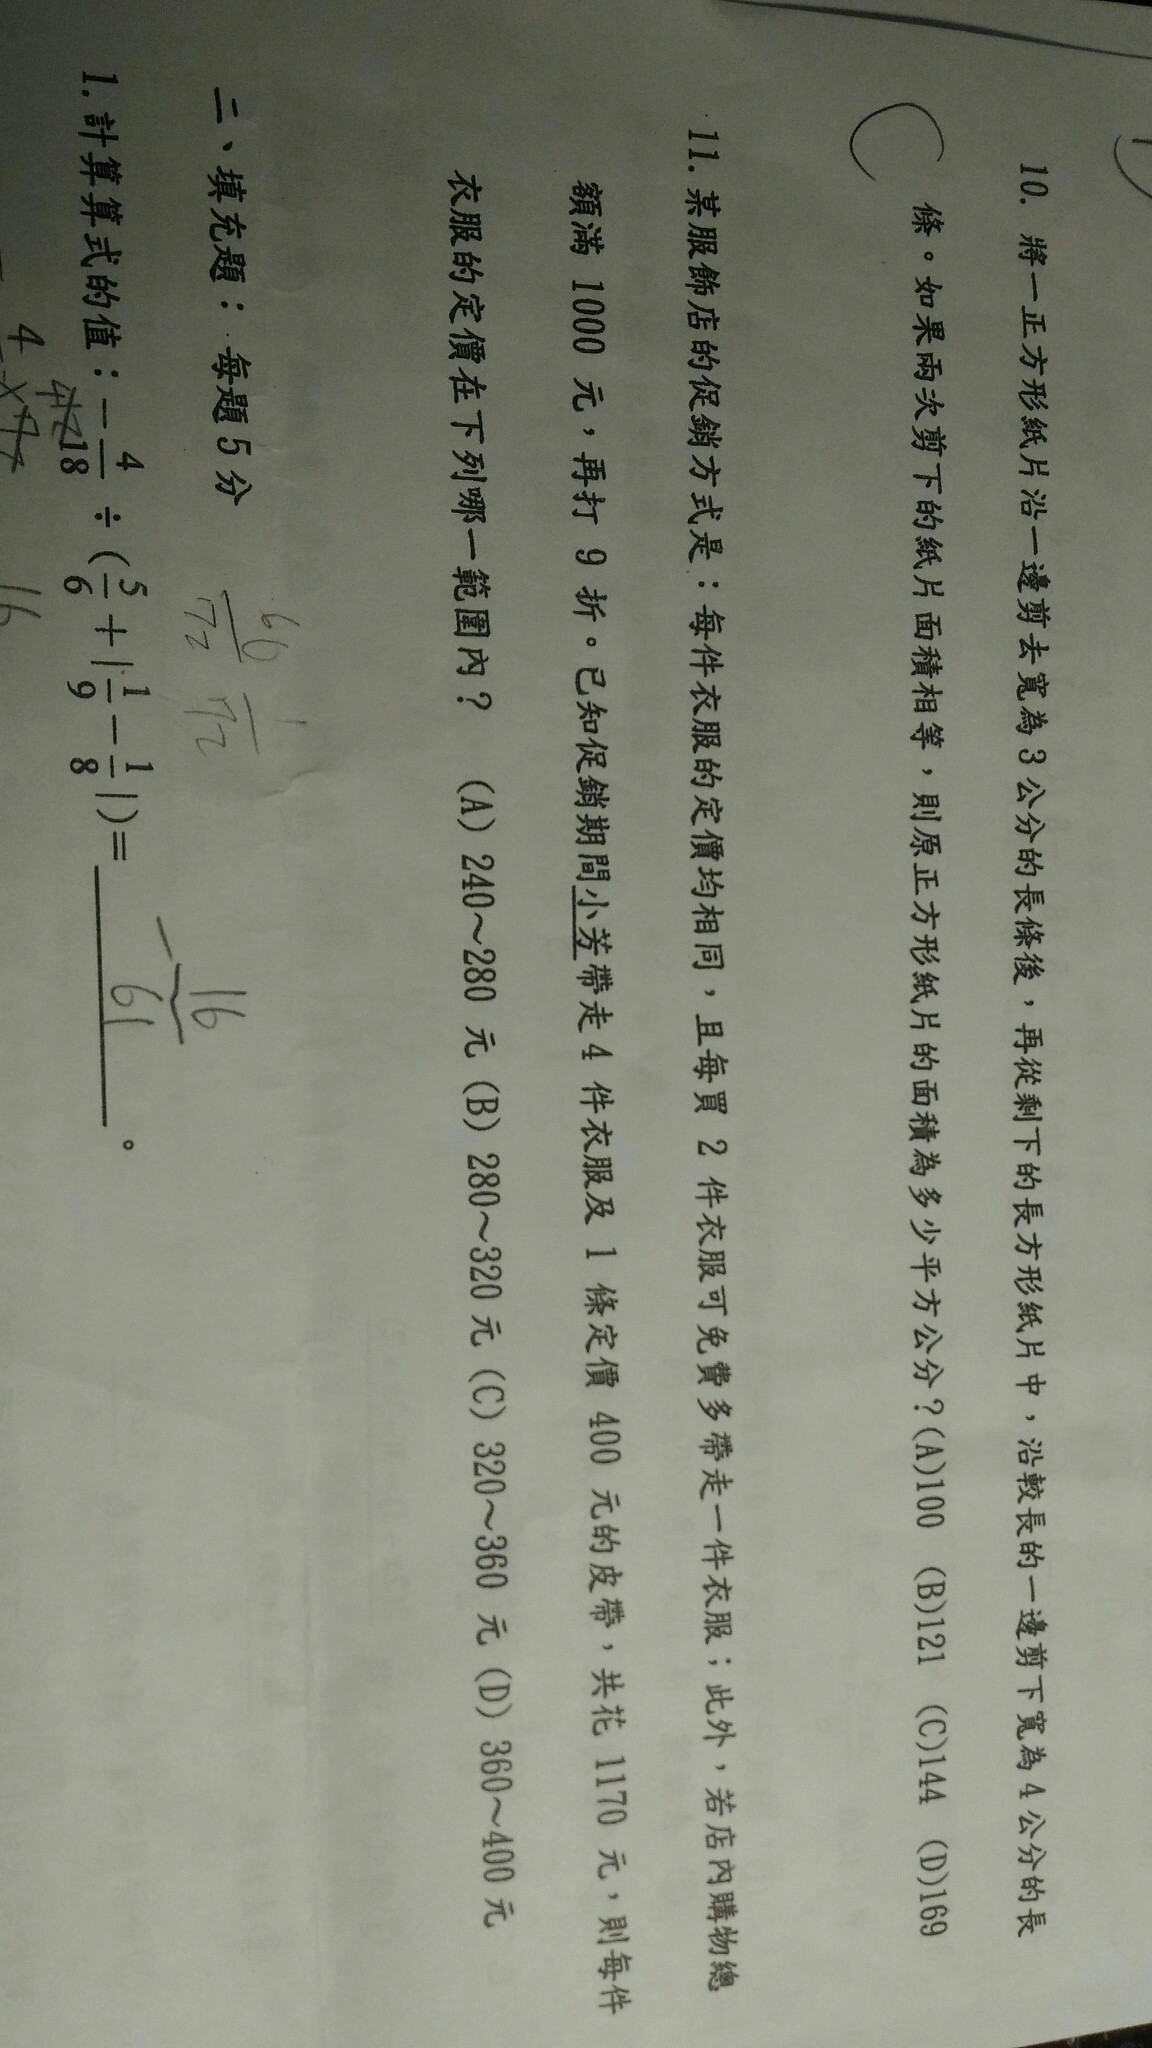 10. 將一正方形紙片沿一邊剪去寬為3公分的長條後，再從剩下的長方形紙片中，沿較長的一邊剪下寬為4公分的長
條。如果兩次剪下的紙片面積相等，則原正方形紙片的面積為多少平方公分？(A)100 (B)121 (C)144 (D)169
11. 某服飾店的促銷方式是：每件衣服的定價均相同，且每買 2 件衣服可免費多帶走一件衣服；此外，若店內購物總
額滿 1000 元，再打 9 折。已知促銷期間小芳帶走 4 件衣服及 1 條定價 400 元的皮帶，共花 1170 元，則每件
衣服的定價在下列哪一範圍內？ (A) 240～280 元 (B) 280～320 元 (C) 320～360 元 (D) 360～400 元
二、填充題：每題5分
60/72 1/72
-16/61
1. 計算算式的值：-4/18 ÷ (5/6 + |1/9 - 1/8|) = ______。
4
16